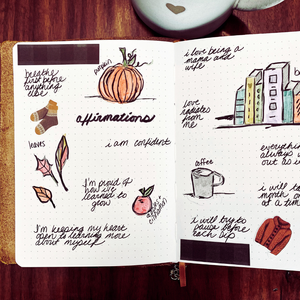 breathe
first before
anything
else
pumpkin
affirmations
leaves
i am confident
I'm proud of
how i've
learned to
grow
I'm keeping my heart
open to learning more
about myself
i love being a
mama and
wife
love
radiates
from
me
coffee
everything
always
out as i
i will ta
month on
at a tim
i will try to
pause before
each sip